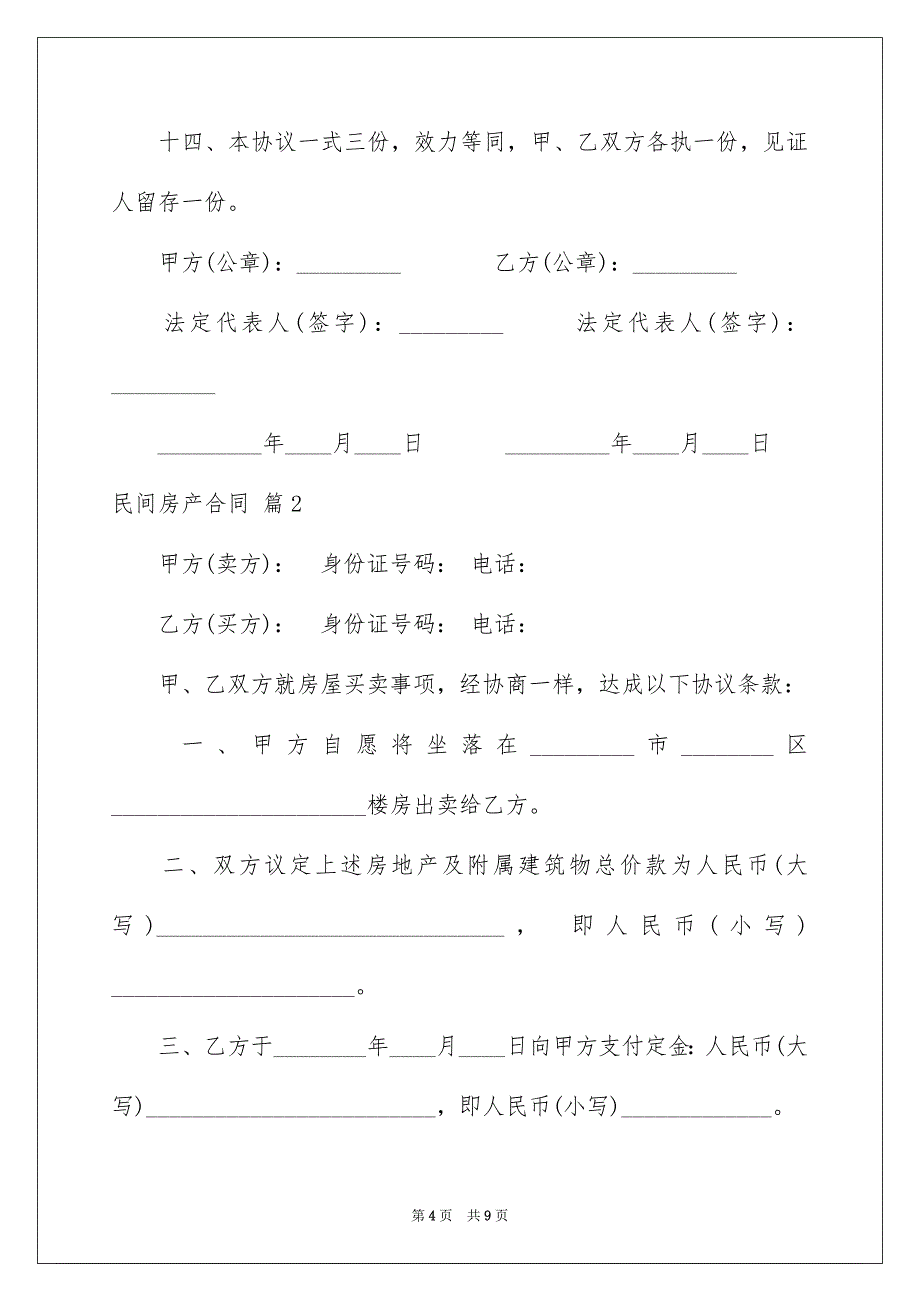 十四、本协议一式三份，效力等同，甲、乙双方各执一份，见证
人留存一份。
甲方(公章)：_________　　　　乙方(公章)：_________
法定代表人(签字)：_________　　　法定代表人(签字)：
_________
_________年____月____日　　　　_________年____月____日
民间房产合同 篇2
甲方(卖方)：　身份证号码： 电话：
乙方(买方)：　身份证号码： 电话：
甲、乙双方就房屋买卖事项，经协商一样，达成以下协议条款：
一、甲方自愿将坐落在_________市________区
______________________楼房出卖给乙方。
二、双方议定上述房地产及附属建筑物总价款为人民币(大
写)______________________________，　即人民币(小写)
_____________________。
三、乙方于________年____月____日向甲方支付定金：人民币(大
写)_________________________，即人民币(小写)_____________。
第4页　共9页